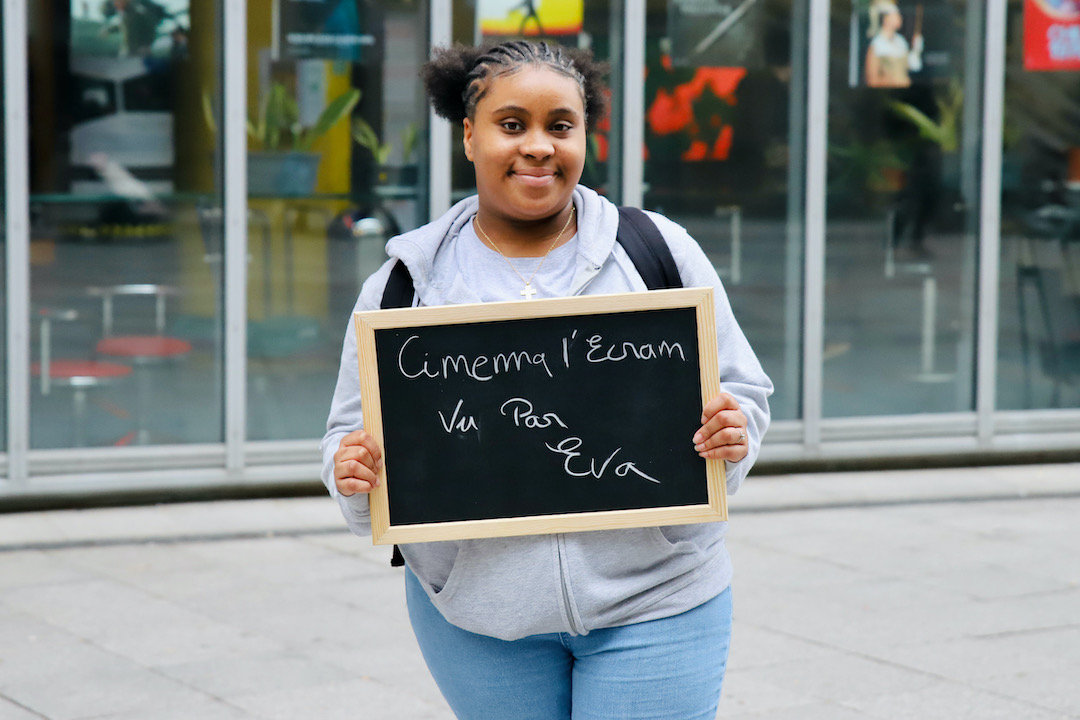 Cinenna l'Ecran
Vu Par
Eva